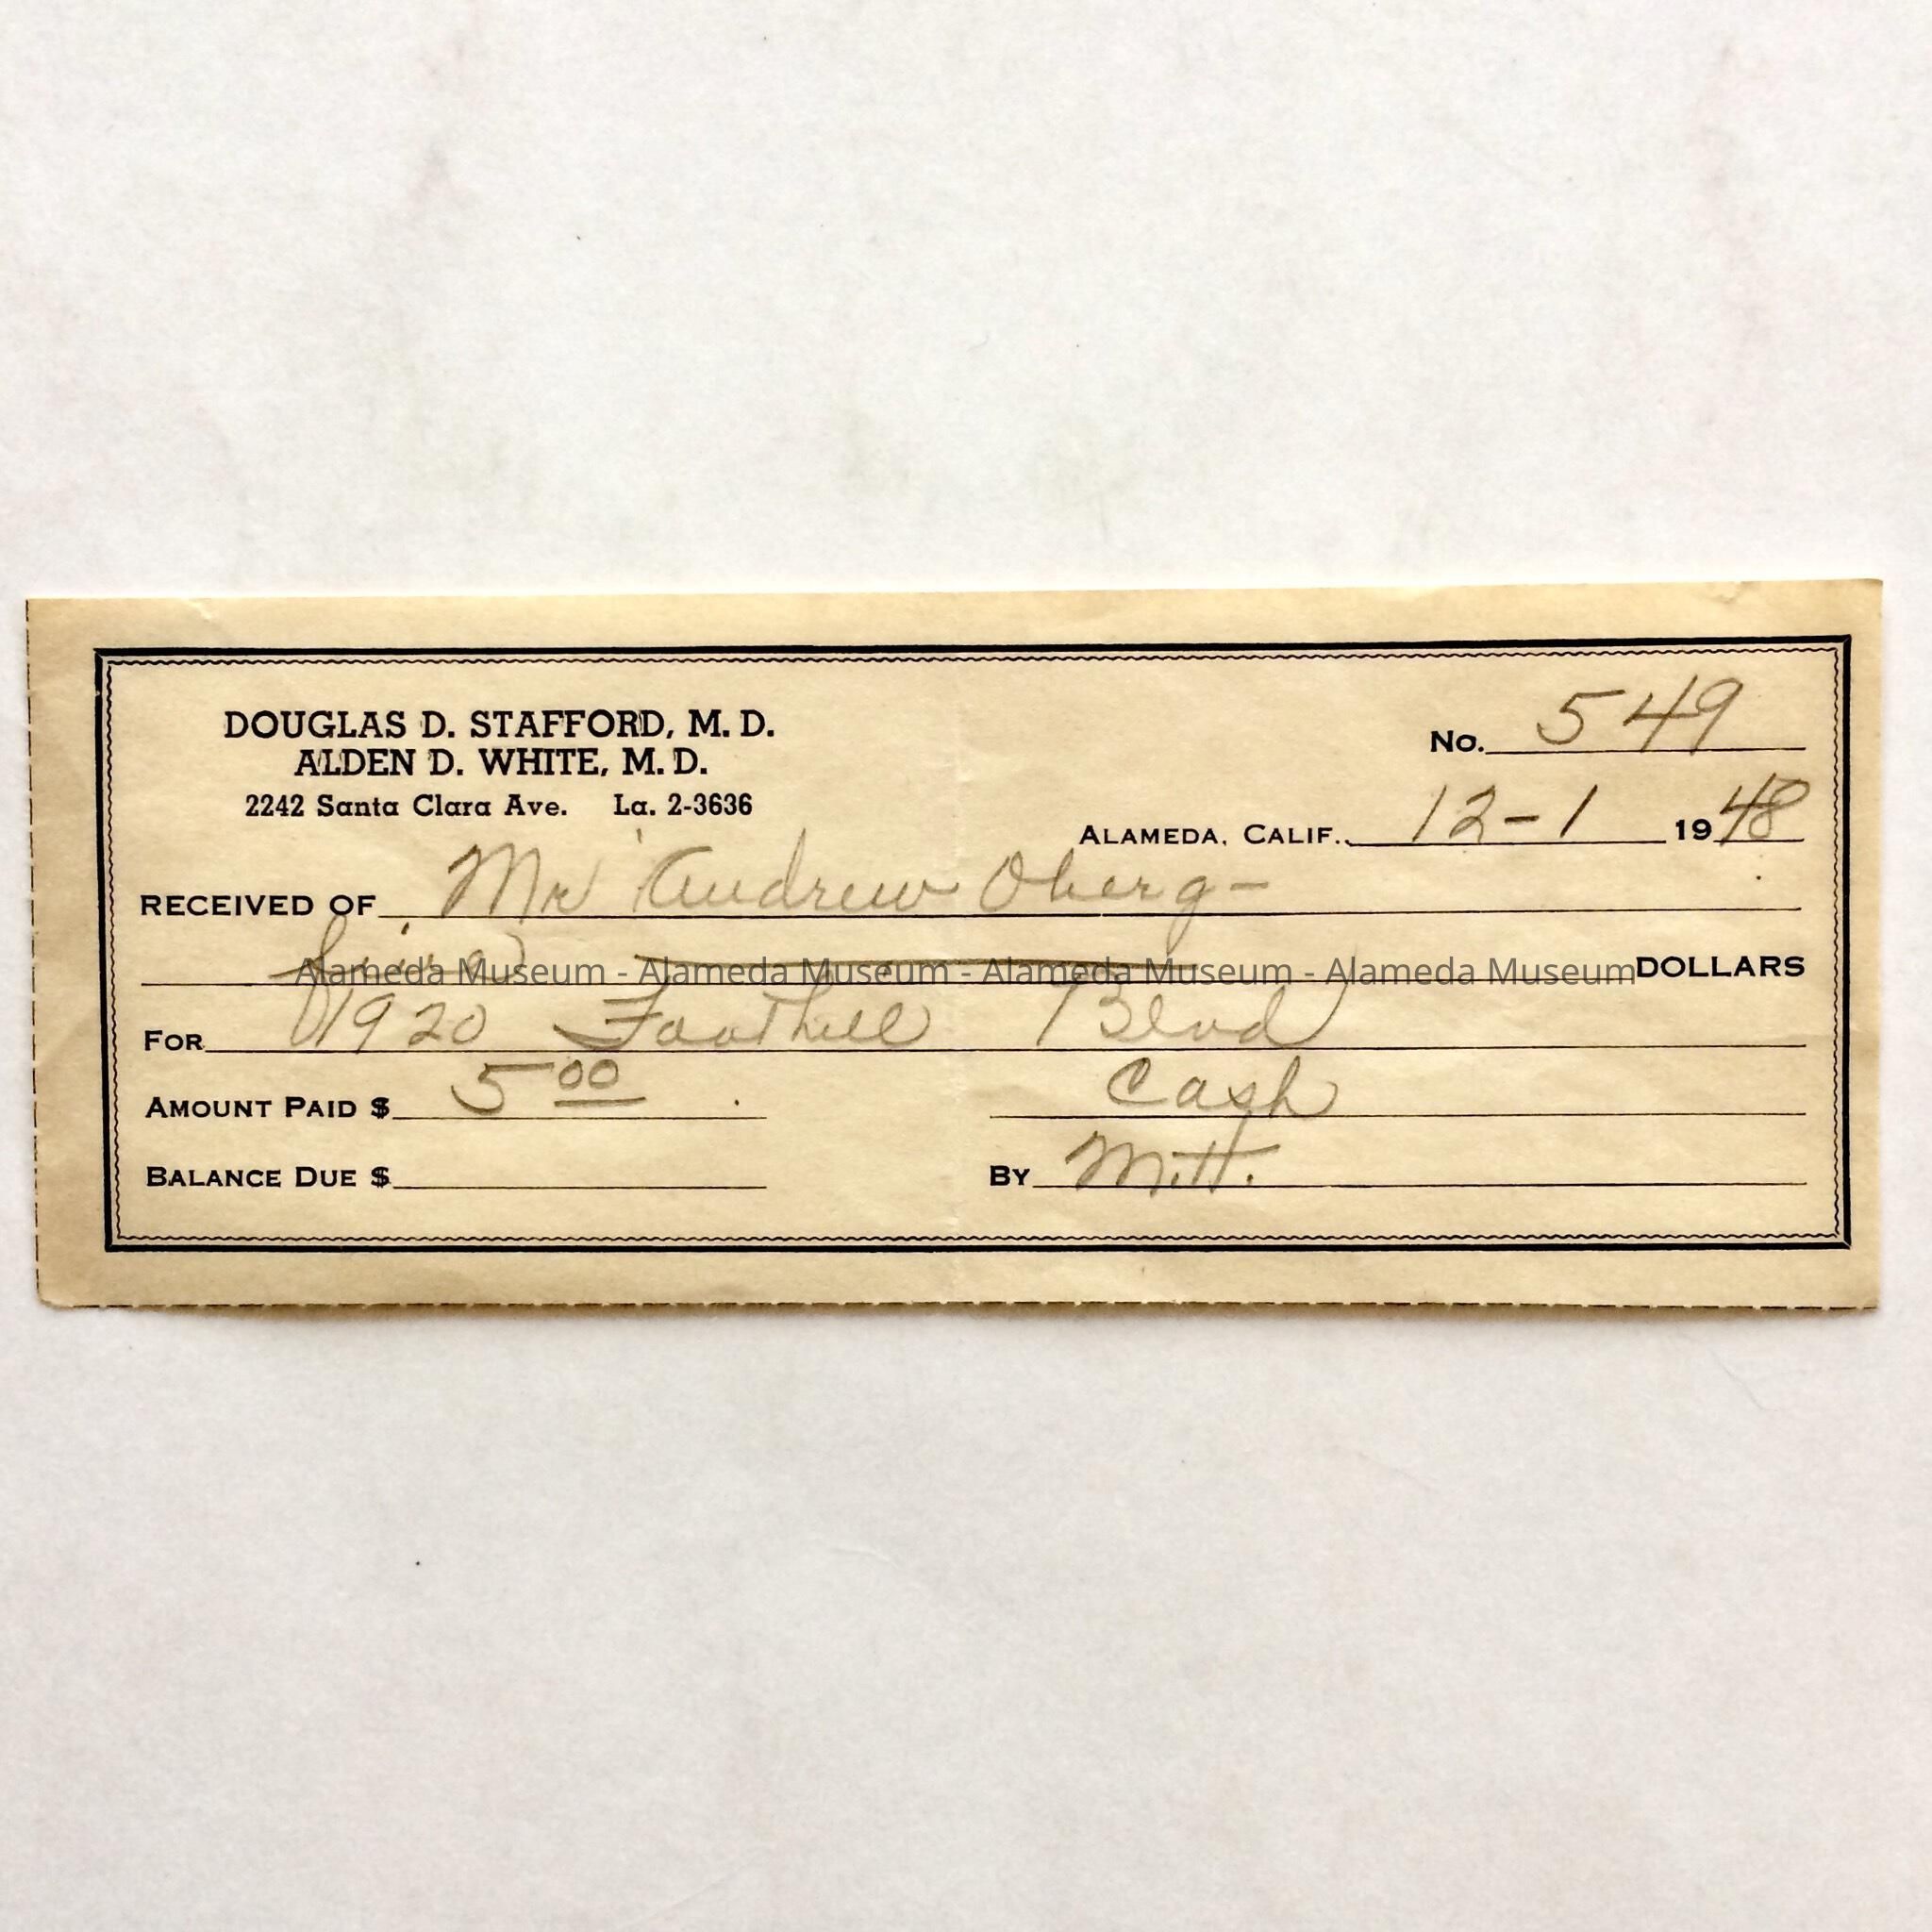 DOUGLAS D. STAFFORD, M. D.
ALDEN D. WHITE, M. D.
2242 Santa Clara Ave. La. 2-3636
No. 549
ALAMEDA, CALIF., 12-1 1948
RECEIVED OF Mr Andrew Oberg-
Alameda Museum - Alameda Museum - Alameda Museum - Alameda Museum DOLLARS
FOR 1920 Foothill Blvd
AMOUNT PAID $ 5 00 Cash
BALANCE DUE $ BY M.H.